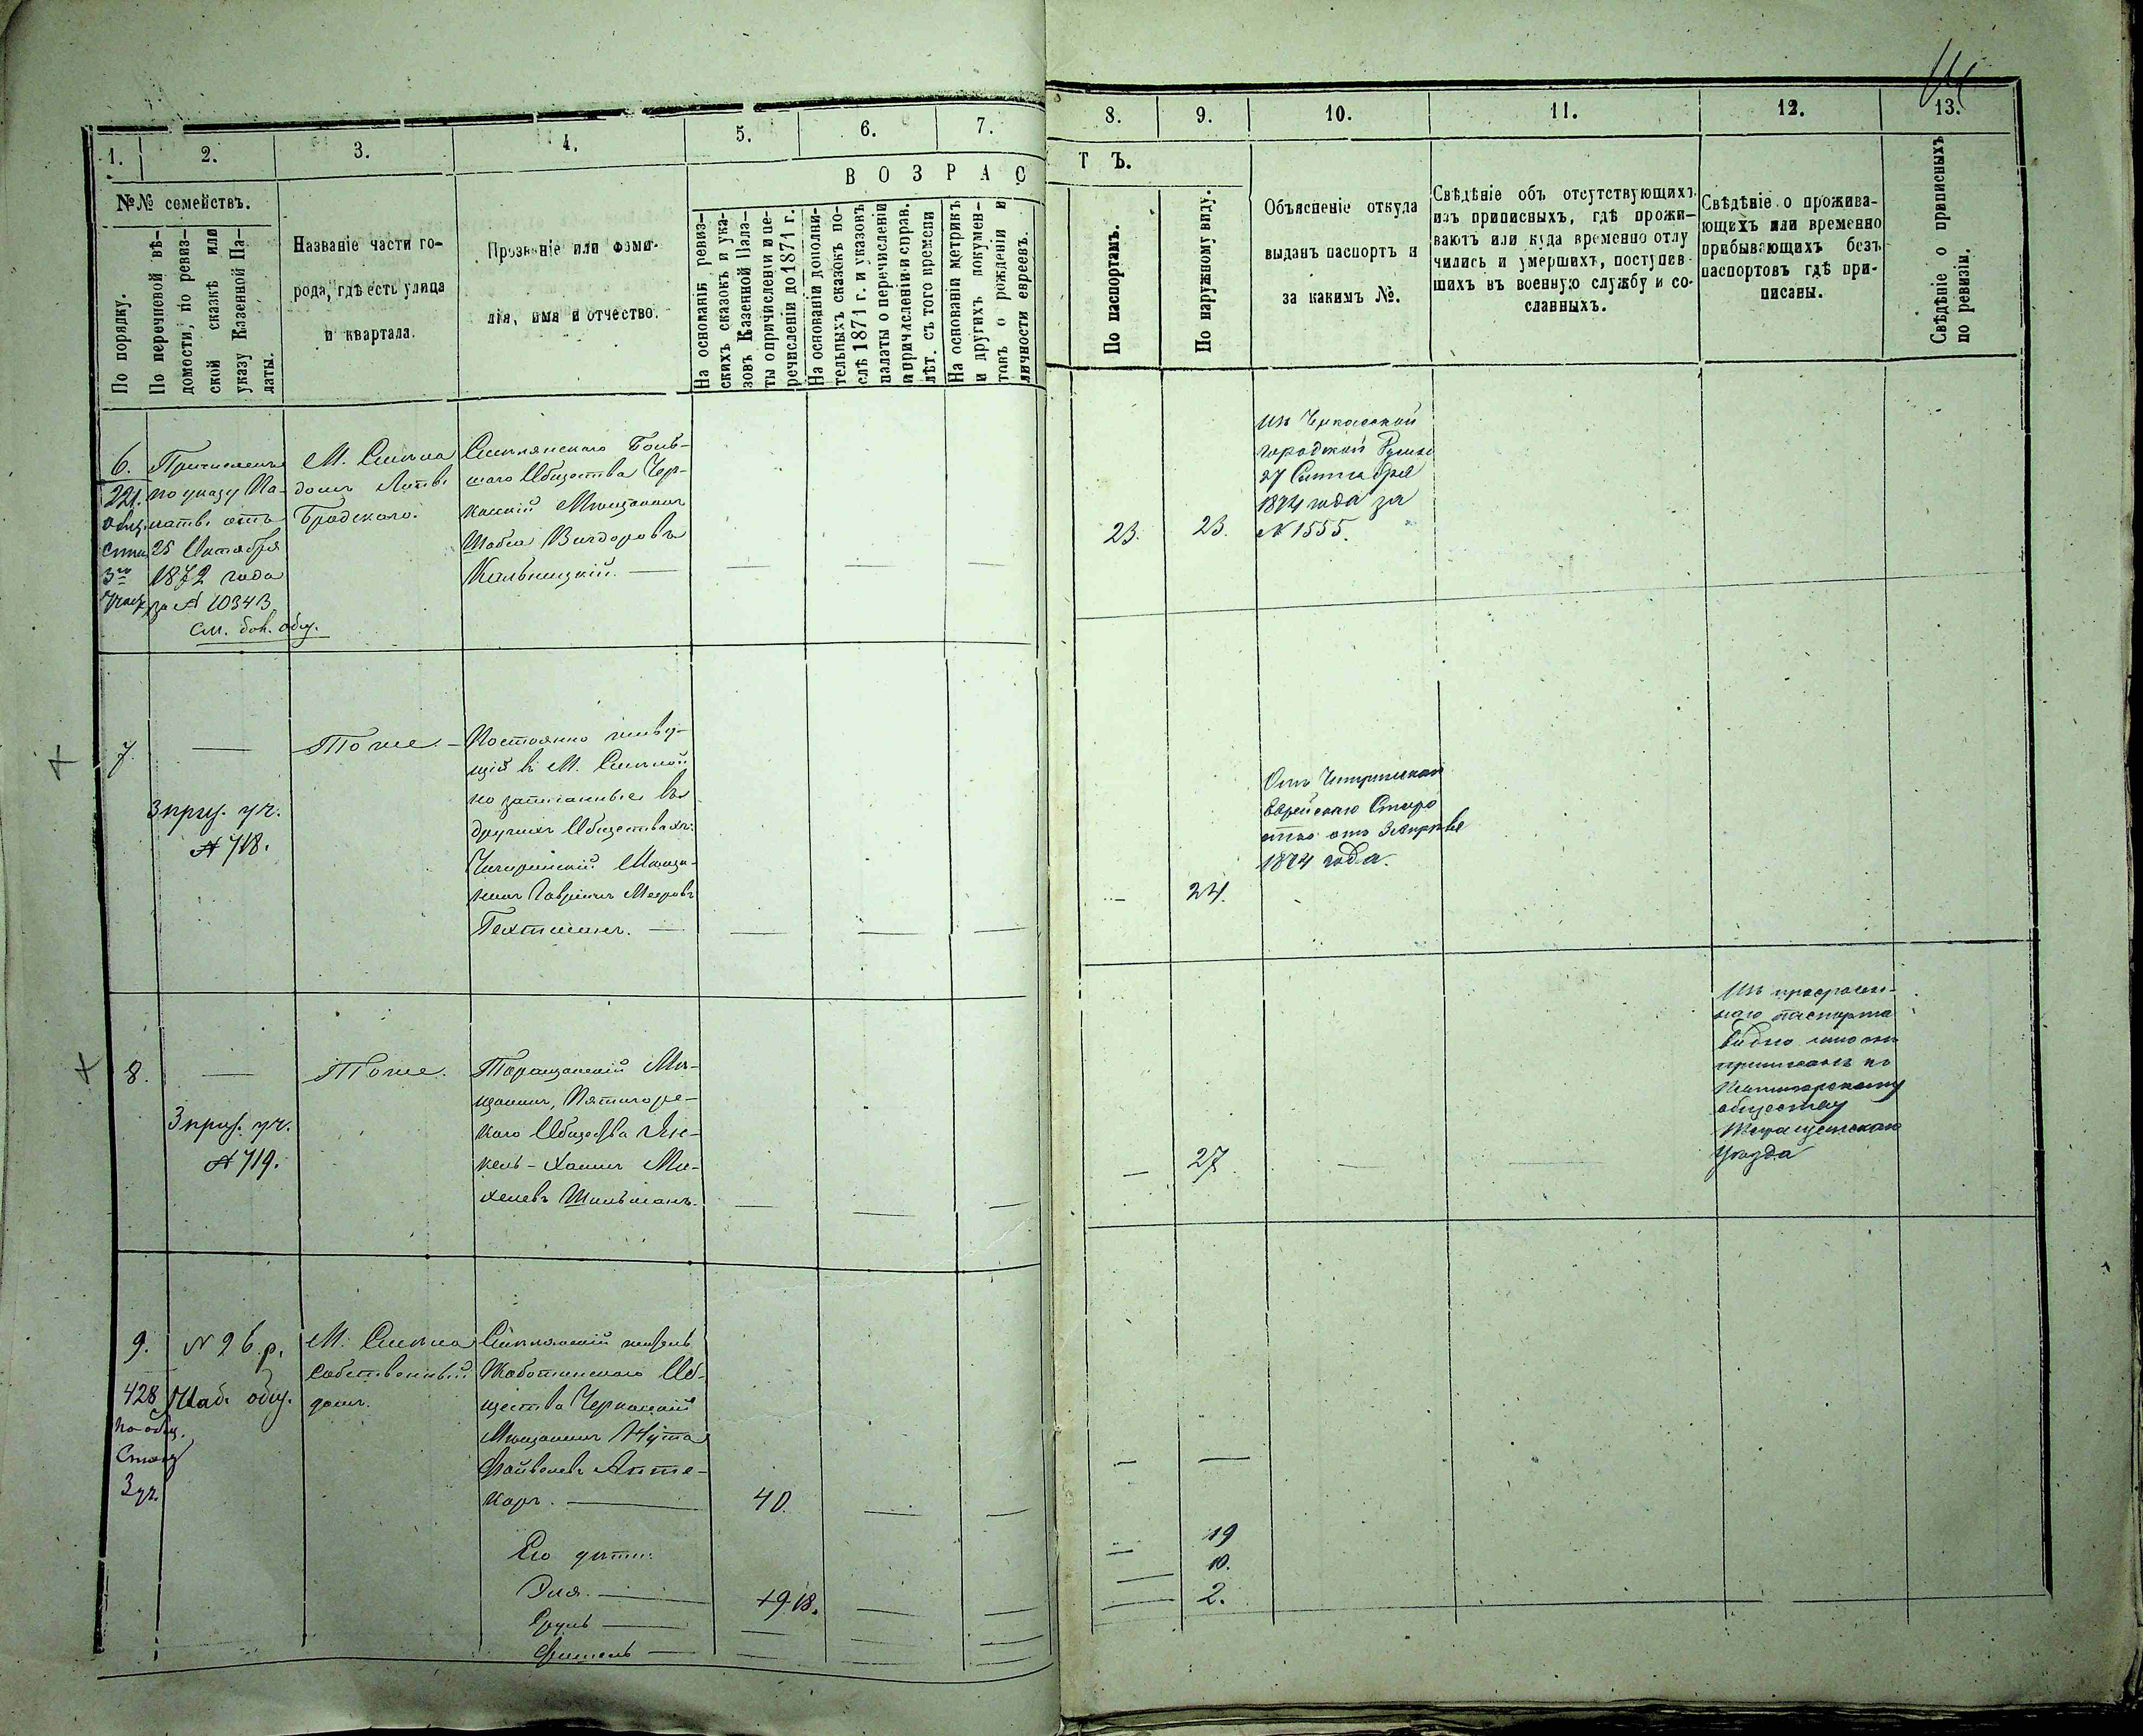 1.
2.
3.
4.
5.
6.
7.
8.
9.
10.
11.
12.
13.
№№ семействъ.
По порядку.
По перечневой вѣ-
домости, по ревиз-
ской сказкѣ или
указу Казенной Па-
латы.
Названіе части го-
рода, гдѣ есть улица
и квартала.
Прозваніе или фами-
лія, имя и отчество.
В О З Р А С
Т Ъ.
На основаніи ревиз-
скихъ сказокъ и ука-
зовъ Казенной Пала-
ты о причисленіи и пе-
речисленіи до 1871 г.
На основаніи дополни-
тельныхъ сказокъ по-
слѣ 1871 г. и указовъ
палаты о перечисленіи
и причисленіи и справ.
лѣт. съ того времени
На основаніи метрикъ
и другихъ докумен-
товъ о рожденіи и
личности евреевъ.
По паспортамъ.
По наружному виду.
Объясненіе откуда
выданъ паспортъ и
за какимъ №.
Свѣдѣніе объ отсутствующихъ
изъ приписныхъ, гдѣ прожи-
ваютъ или куда временно отлу
чились и умершихъ, поступив-
шихъ въ военную службу и со-
сланныхъ.
Свѣдѣніе о прожива-
ющихъ или временно
прибывающихъ безъ
паспортовъ гдѣ при-
писаны.
Свѣдѣніе о приписныхъ
по ревизіи.
6.
221.
общ.
3го
Причисленъ
по указу Па-
латы отъ
25 Октября
1872 года
за № 10343
см. бог. общ.
М. Смѣла
домъ
Бродского.
Смѣлянскаго Бога-
шаго Общества Чер-
касскій Мѣщанинъ
Вигдоровъ
Кальницкій. —
23.
23.
Изъ Черкасской
городской Думы
27 Сентября
1874 года за
№ 1555.
7.
3 приз. уч.
№ 718.
Тоже.
Постоянно живу-
щій в М. Смѣлой
но записанные въ
другихъ Обществахъ:
Чигиринскій Мѣща-
нинъ Гавріилъ Мееровъ
Гехтманъ. —
24.
Отъ Чигиринскаго
Еврейскаго Старо
сты отъ 3 Апрѣля
1874 года.
8.
3 приз. уч.
№ 719.
Тоже.
Таращанскій Мѣ-
щанинъ, Пятигор-
скаго Общества
Хаимъ Ми-
хелевъ Шильманъ.
27
Изъ просрочен-
наго паспорта
видно что онъ
приписанъ къ
обществу
Таращанскаго
уѣзда
9.
428
по общ.
Списку
3 уч.
№ 26 р.
Жаб. общ.
М. Смѣла
собственный
домъ.
Смѣлянскій житель
Жаботинскаго Об-
щества Черкасскій
Мѣщанинъ Нута
Файвелевъ Апте-
карь. —
40.
Его дѣти:
Эля. —
19 18.
19
Сруль —
10.
Фишель —
2.